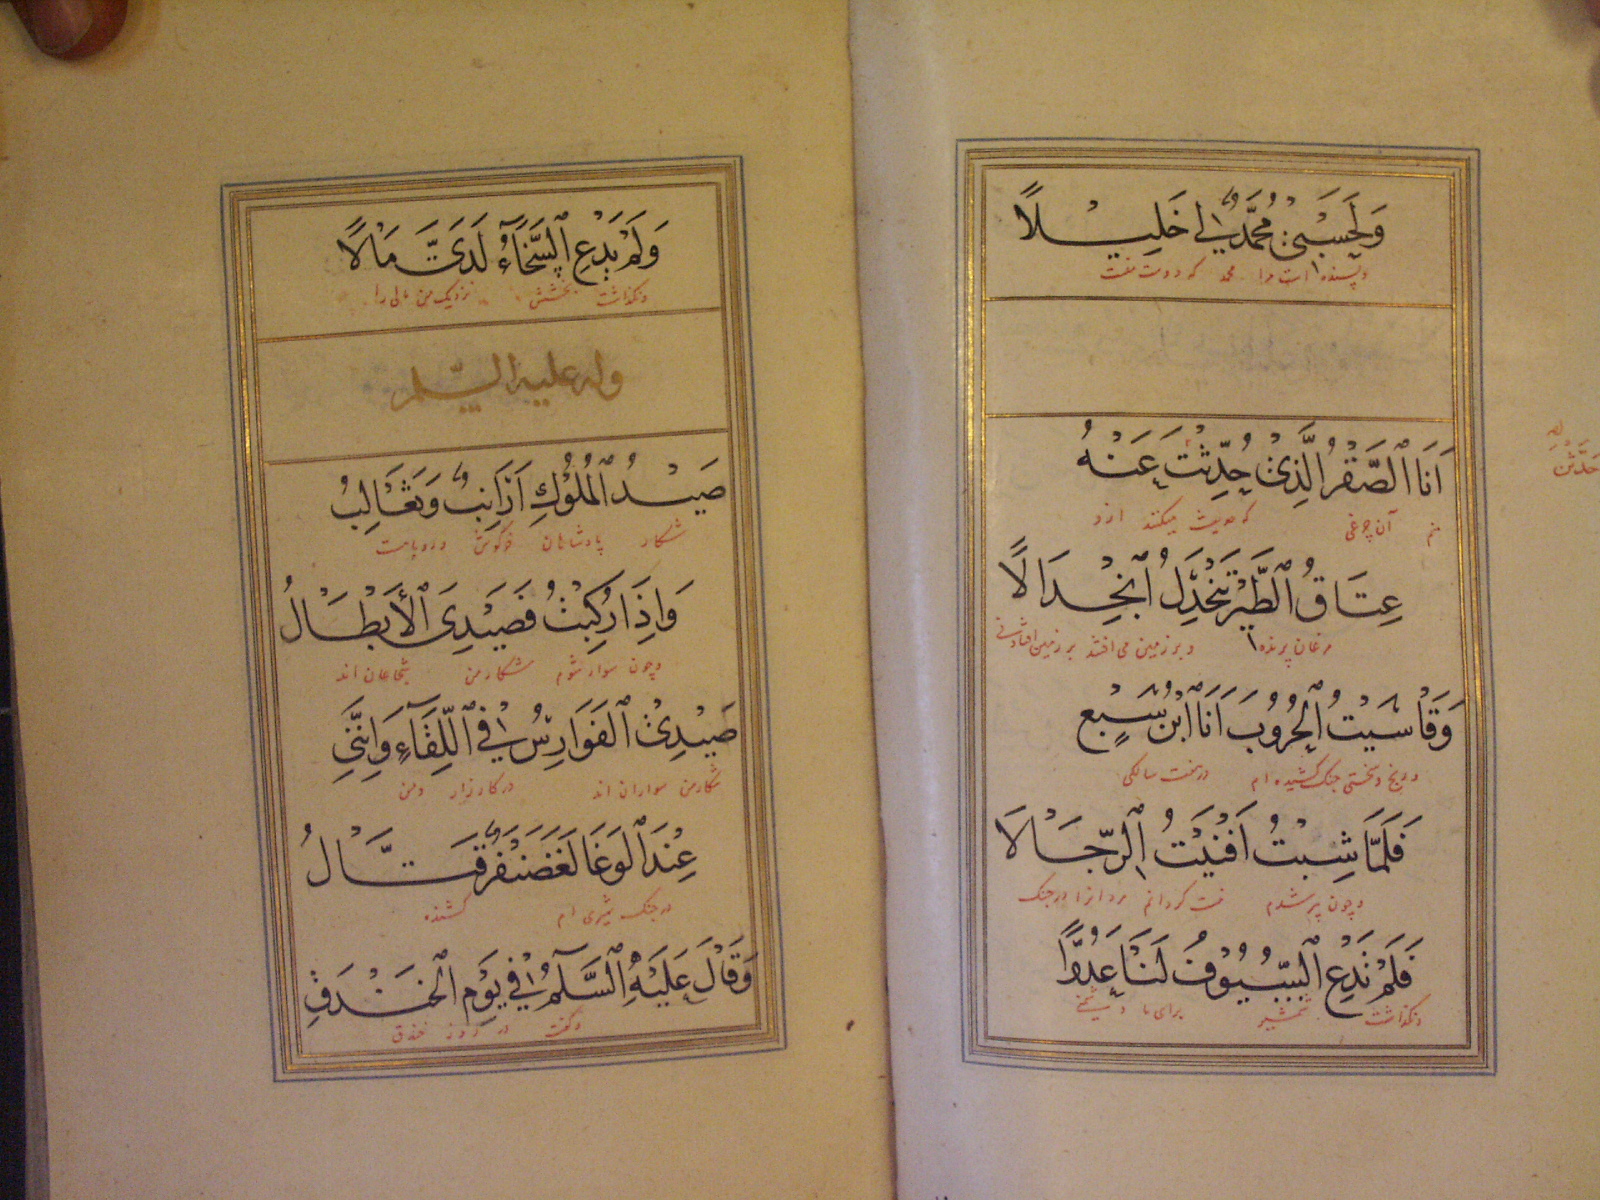 وَلَحَسْبِيْ مُحَمَّدٌ لِي خَلِيْلًا
و بسنده است مرا محمد که دوست منست
اَنَا الصَّقْرُ الَّذِيْ حُدِّثْتَ عَنْهُ
منم آن چرغی که حدیث میکنند ازو
عِتَاقُ الطَّيْرِ تَنْجَدِلُ انْجِدَالًا
مرغان پرنده و بر زمین می افتند بر زمین افتادنی
وَقَاسَيْتُ الْحُرُوْبَ اَنَا ابْنُ سَبْعٍ
و رنج و سختی جنک کشیده ام در هفت سالکی
فَلَمَّا شِبْتُ اَفْنَيْتُ الرِّجَالَا
و چون پیر شدم نیست کردانم مردانرا در جنک
فَلَمْ نَدَعِ السُّيُوْفُ لَنَا عَدُوًّا
و نکذاشت شمشیر برای ما دشمنی
وَلَمْ يَدَعِ السَّخَآءُ لَدَيَّ مَالًا
و نکذاشت بخشش نزدیک من مالی را
وله عليه السلم
صَيْدُ الْمُلُوْكِ اَرَانِبٌ وَثَعَالِبُ
شکار پادشاهان خرکوش و روباهست
وَاِذَا رَكِبْتُ فَصَيْدِيَ الْأَبْطَالُ
و چون سوار شوم شکار من شجاعان اند
صَيْدِيْ الْفَوَارِسُ فِي اللِّقَآءِ وَاِنَّنِي
شکار من سواران اند در کارزار و من
عِنْدَ الْوَغَا لَغَضَنْفَرٌ قَتَّالُ
در جنک شیری ام کشنده
وَقَالَ عَلَيْهِ السَّلَمُ فِي يَوْمِ الْخَنْدَقِ
و کفت در روز خندق